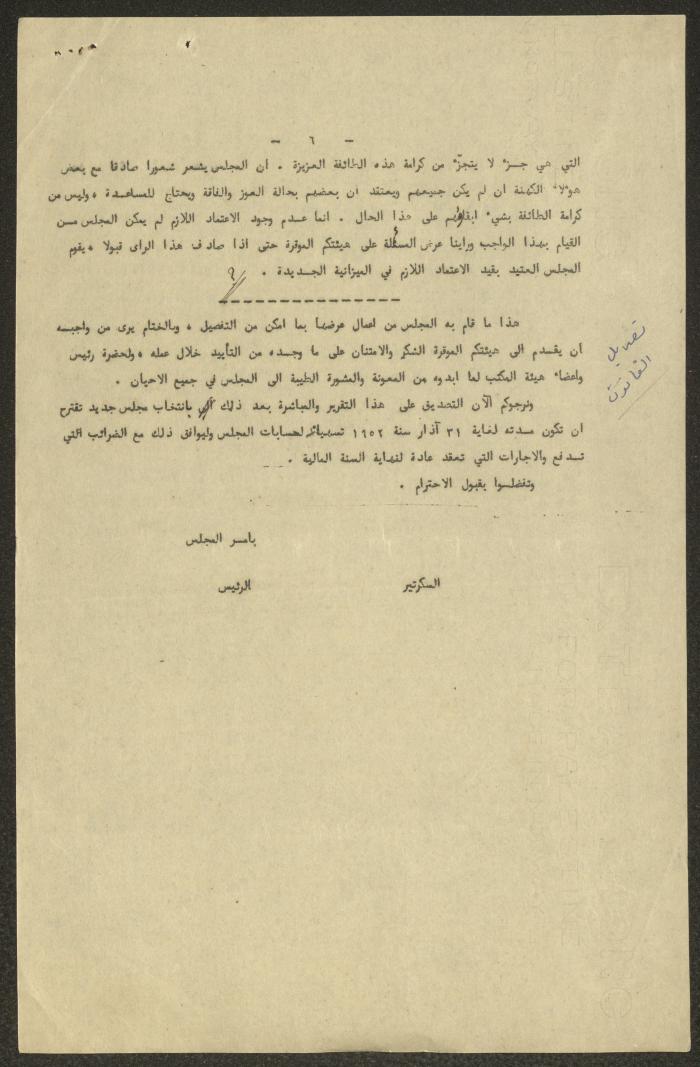 - ٦ -
التي هي جزء لا يتجزّء من كرامة هذه الطائفة العزيزة . ان المجلس يشعر شعورا صادقا مع بعض
هولاء الكهنة ان لم يكن جميعهم ويعتقد ان بعضهم بحالة العوز والفاقة ويحتاج للمساعدة ، وليس من
كرامة الطائفة بشيء ابقاؤهم على هذا الحال . انما عدم وجود الاعتماد اللازم لم يمكن المجلس من
القيام بهذا الواجب وراينا عرض المسئلة على هيئتكم الموقرة حتى اذا صادف هذا الراى قبولا ، يقوم
المجلس العتيد بقيد الاعتماد اللازم في الميزانية الجديدة . ?
هذا ما قام به المجلس من اعمال عرضها بما امكن من التفصيل ، وبالختام يرى من واجبه
ان يقدم الى هيئتكم الموقرة الشكر والامتنان على ما وجده من التأييد خلال عمله ، ولحضرة رئيس
واعضاء هيئة المكتب لما ابدوه من المعونة والمشورة الطيبة الى المجلس في جميع الاحيان .
ونرجوكم الآن التصديق على هذا التقرير والمباشرة بعد ذلك بانتخاب مجلس جديد تقترح
ان تكون مدته لغاية ٣١ آذار سنة ١٩٥٢ تسهيلا لحسابات المجلس وليوافق ذلك مع الضرائب التي
تدفع والاجارات التي تعقد عادة لنهاية السنة المالية .
وتفضلوا بقبول الاحترام .
بامر المجلس
السكرتير الرئيس
تعديل
القانون